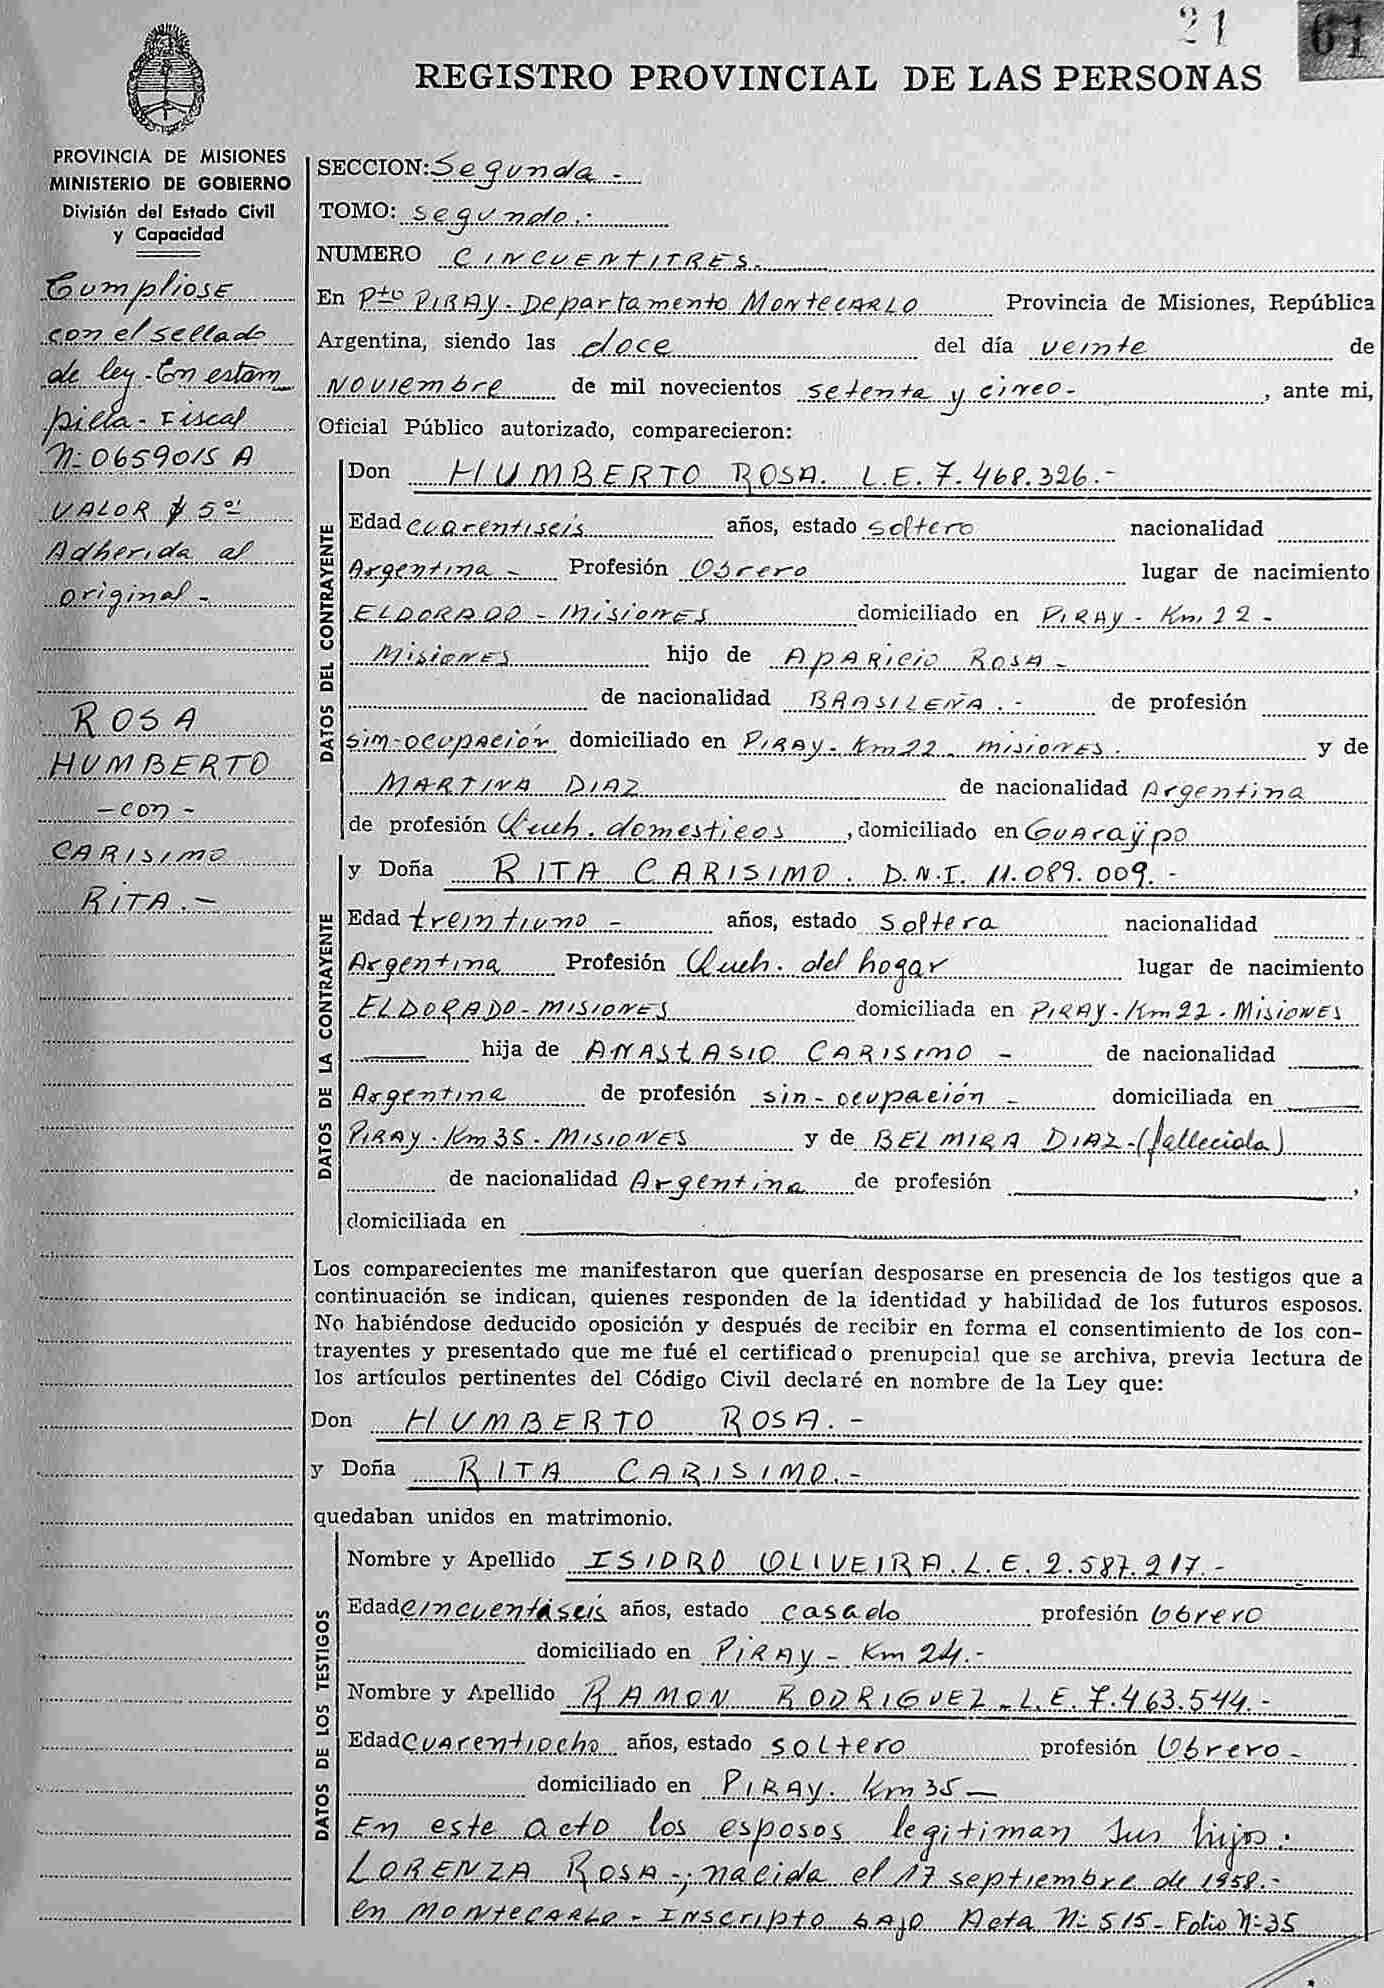 21
61
REGISTRO PROVINCIAL DE LAS PERSONAS
PROVINCIA DE MISIONES
MINISTERIO DE GOBIERNO
División del Estado Civil
y Capacidad
Cumpliose
con el sellado
de ley - En estam
pilla - Fiscal
N: 0659015 A
VALOR $ 5º
Adherida al
original -
ROSA
HUMBERTO
- con -
CARISIMO
RITA. -
SECCION: Segunda -
TOMO: segundo.-
NUMERO CINCUENTITRES.
En Pto PIRAY - Departamento MONTECARLO Provincia de Misiones, República
Argentina, siendo las doce del día veinte de
Noviembre de mil novecientos setenta y cinco - , ante mi,
Oficial Público autorizado, comparecieron:
DATOS DEL CONTRAYENTE
Don HUMBERTO ROSA. L.E. 7.468.326.-
Edad cuarentiseis años, estado soltero nacionalidad
Argentina - Profesión Obrero lugar de nacimiento
ELDORADO - MISIONES domiciliado en PIRAY - Km. 22 -
MISIONES hijo de APARICIO ROSA -
de nacionalidad BRASILEÑA. - de profesión
sim-ocupación domiciliado en PIRAY - Km 22 - MISIONES. y de
MARTINA DIAZ de nacionalidad Argentina
de profesión Queh. domesticos , domiciliado en Guaraÿpo
DATOS DE LA CONTRAYENTE
y Doña RITA CARISIMO. D.N.I. 11.089.009. -
Edad treintiuno - años, estado soltera nacionalidad
Argentina Profesión Queh. del hogar lugar de nacimiento
ELDORADO - MISIONES domiciliada en PIRAY - Km 22 - MISIONES
hija de ANASTASIO CARISIMO - de nacionalidad
Argentina de profesión sin - ocupación - domiciliada en
PIRAY - Km 35 - MISIONES y de BELMIRA DIAZ - (fallecida)
de nacionalidad Argentina de profesión ,
domiciliada en
Los comparecientes me manifestaron que querían desposarse en presencia de los testigos que a
continuación se indican, quienes responden de la identidad y habilidad de los futuros esposos.
No habiéndose deducido oposición y después de recibir en forma el consentimiento de los con-
trayentes y presentado que me fué el certificado prenupcial que se archiva, previa lectura de
los artículos pertinentes del Código Civil declaré en nombre de la Ley que:
Don HUMBERTO ROSA. -
y Doña RITA CARISIMO. -
quedaban unidos en matrimonio.
DATOS DE LOS TESTIGOS
Nombre y Apellido ISIDRO OLIVEIRA. L.E. 2.587.217.-
Edad cincuentáseis años, estado casado profesión Obrero
domiciliado en PIRAY - Km 24.-
Nombre y Apellido RAMON RODRIGUEZ - L.E. 7.463.544.-
Edad cuarentiocho años, estado soltero profesión Obrero -
domiciliado en PIRAY. Km 35 -
En este acto los esposos legitiman sus hijos:
LORENZA ROSA -; nacida el 17 septiembre de 1958.-
en MONTECARLO - INSCRIPTO BAJO Acta N: 515 - Folio N: 35